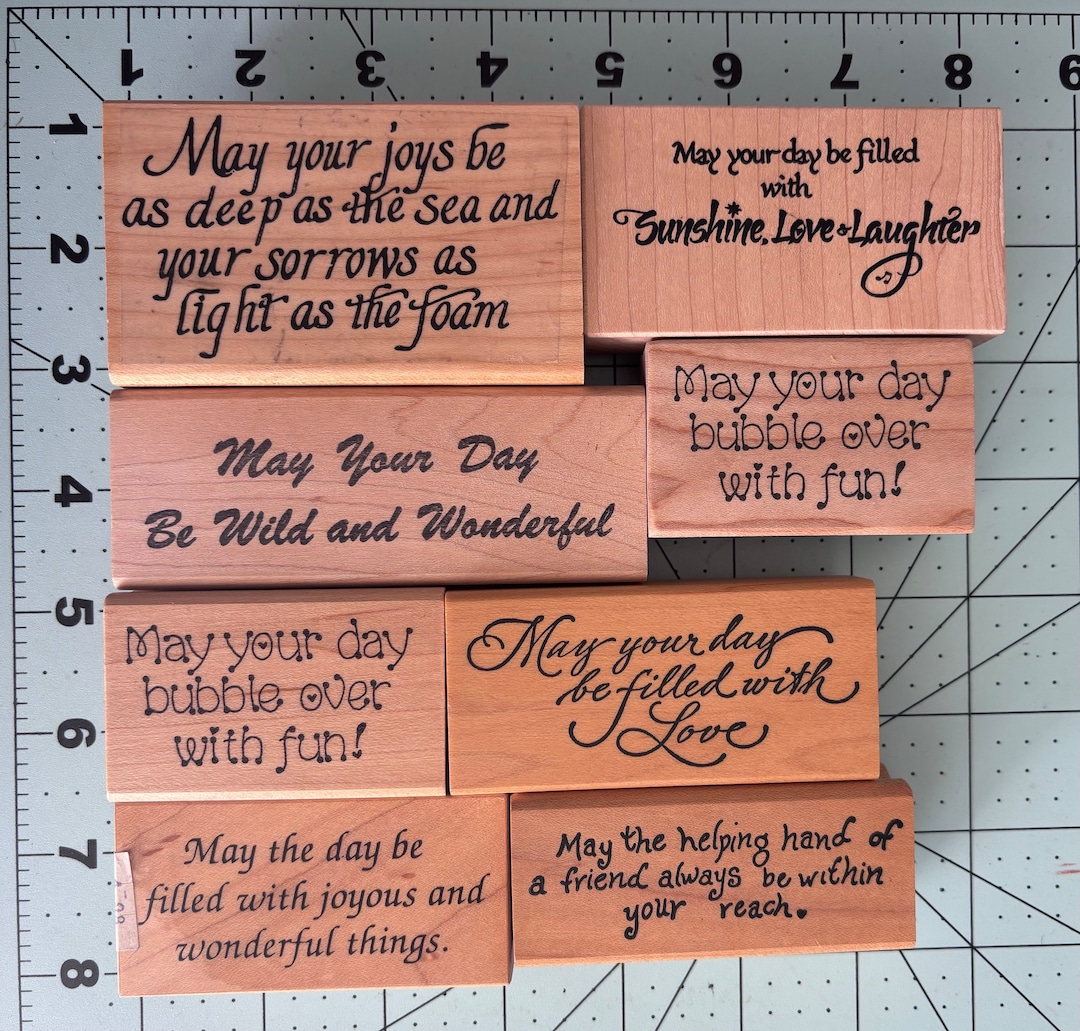 1 2 3 4 5 6 7 8 9
1
2
3
4
5
6
7
8
May your joys be
as deep as the sea and
your sorrows as
light as the foam
May your day be filled
with
Sunshine, Love & Laughter
May Your Day
Be Wild and Wonderful
May your day
bubble over
with fun!
May your day
bubble over
with fun!
May your day
be filled with
Love
May the day be
filled with joyous and
wonderful things.
May the helping hand of
a friend always be within
your reach.